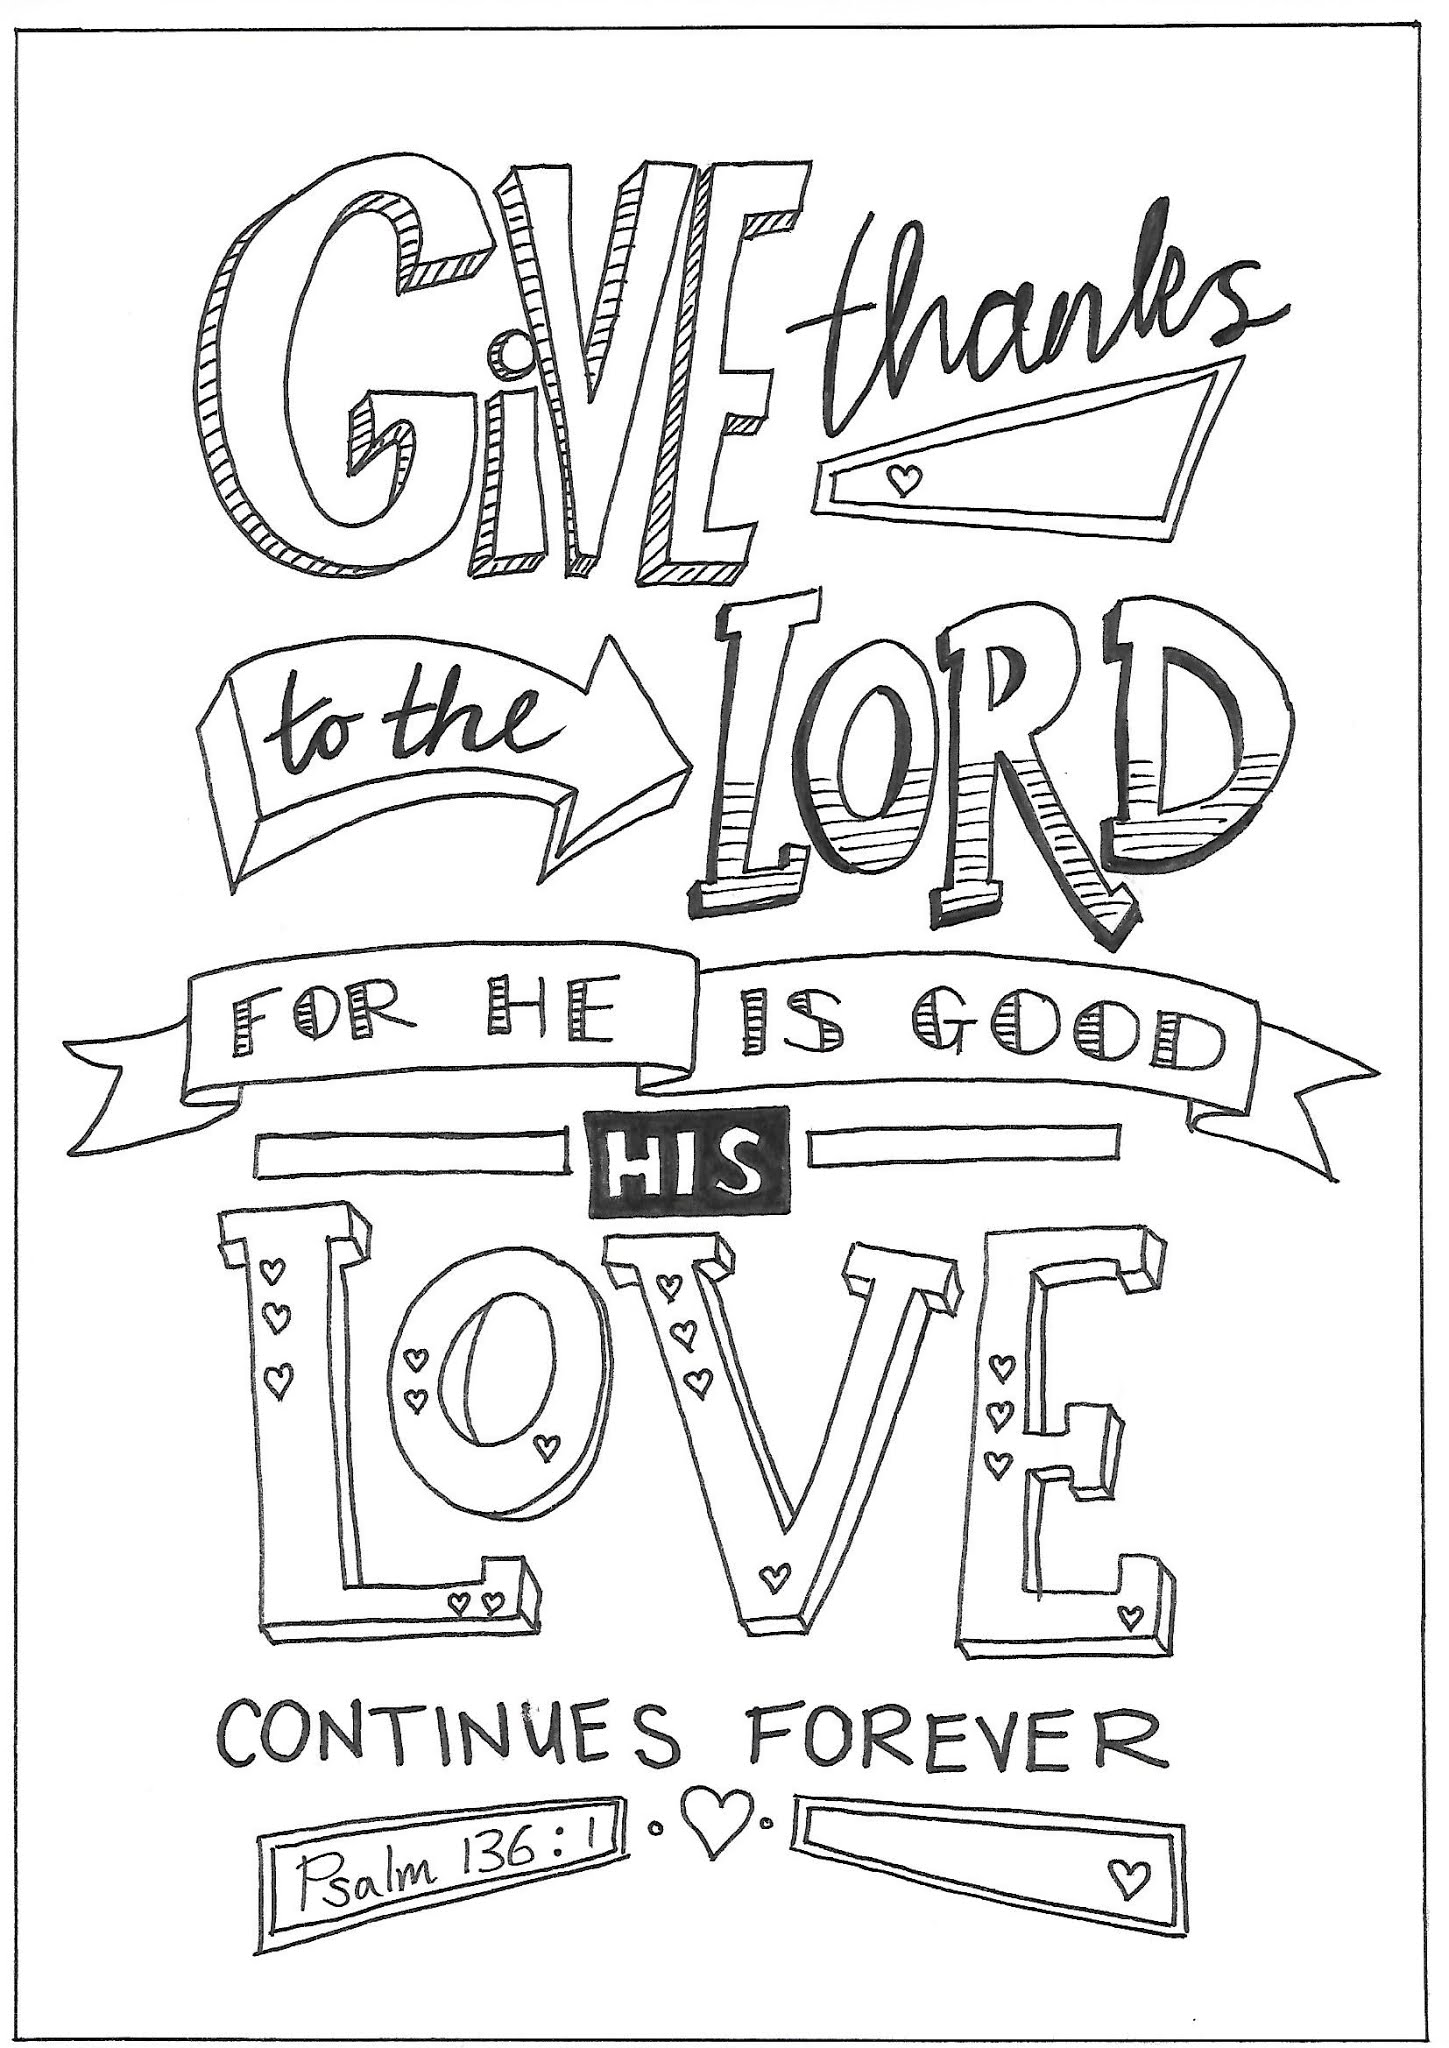 GiVE thanks
to the LORD
FOR HE IS GOOD
HIS
LOVE
CONTINUES FOREVER
Psalm 136:1